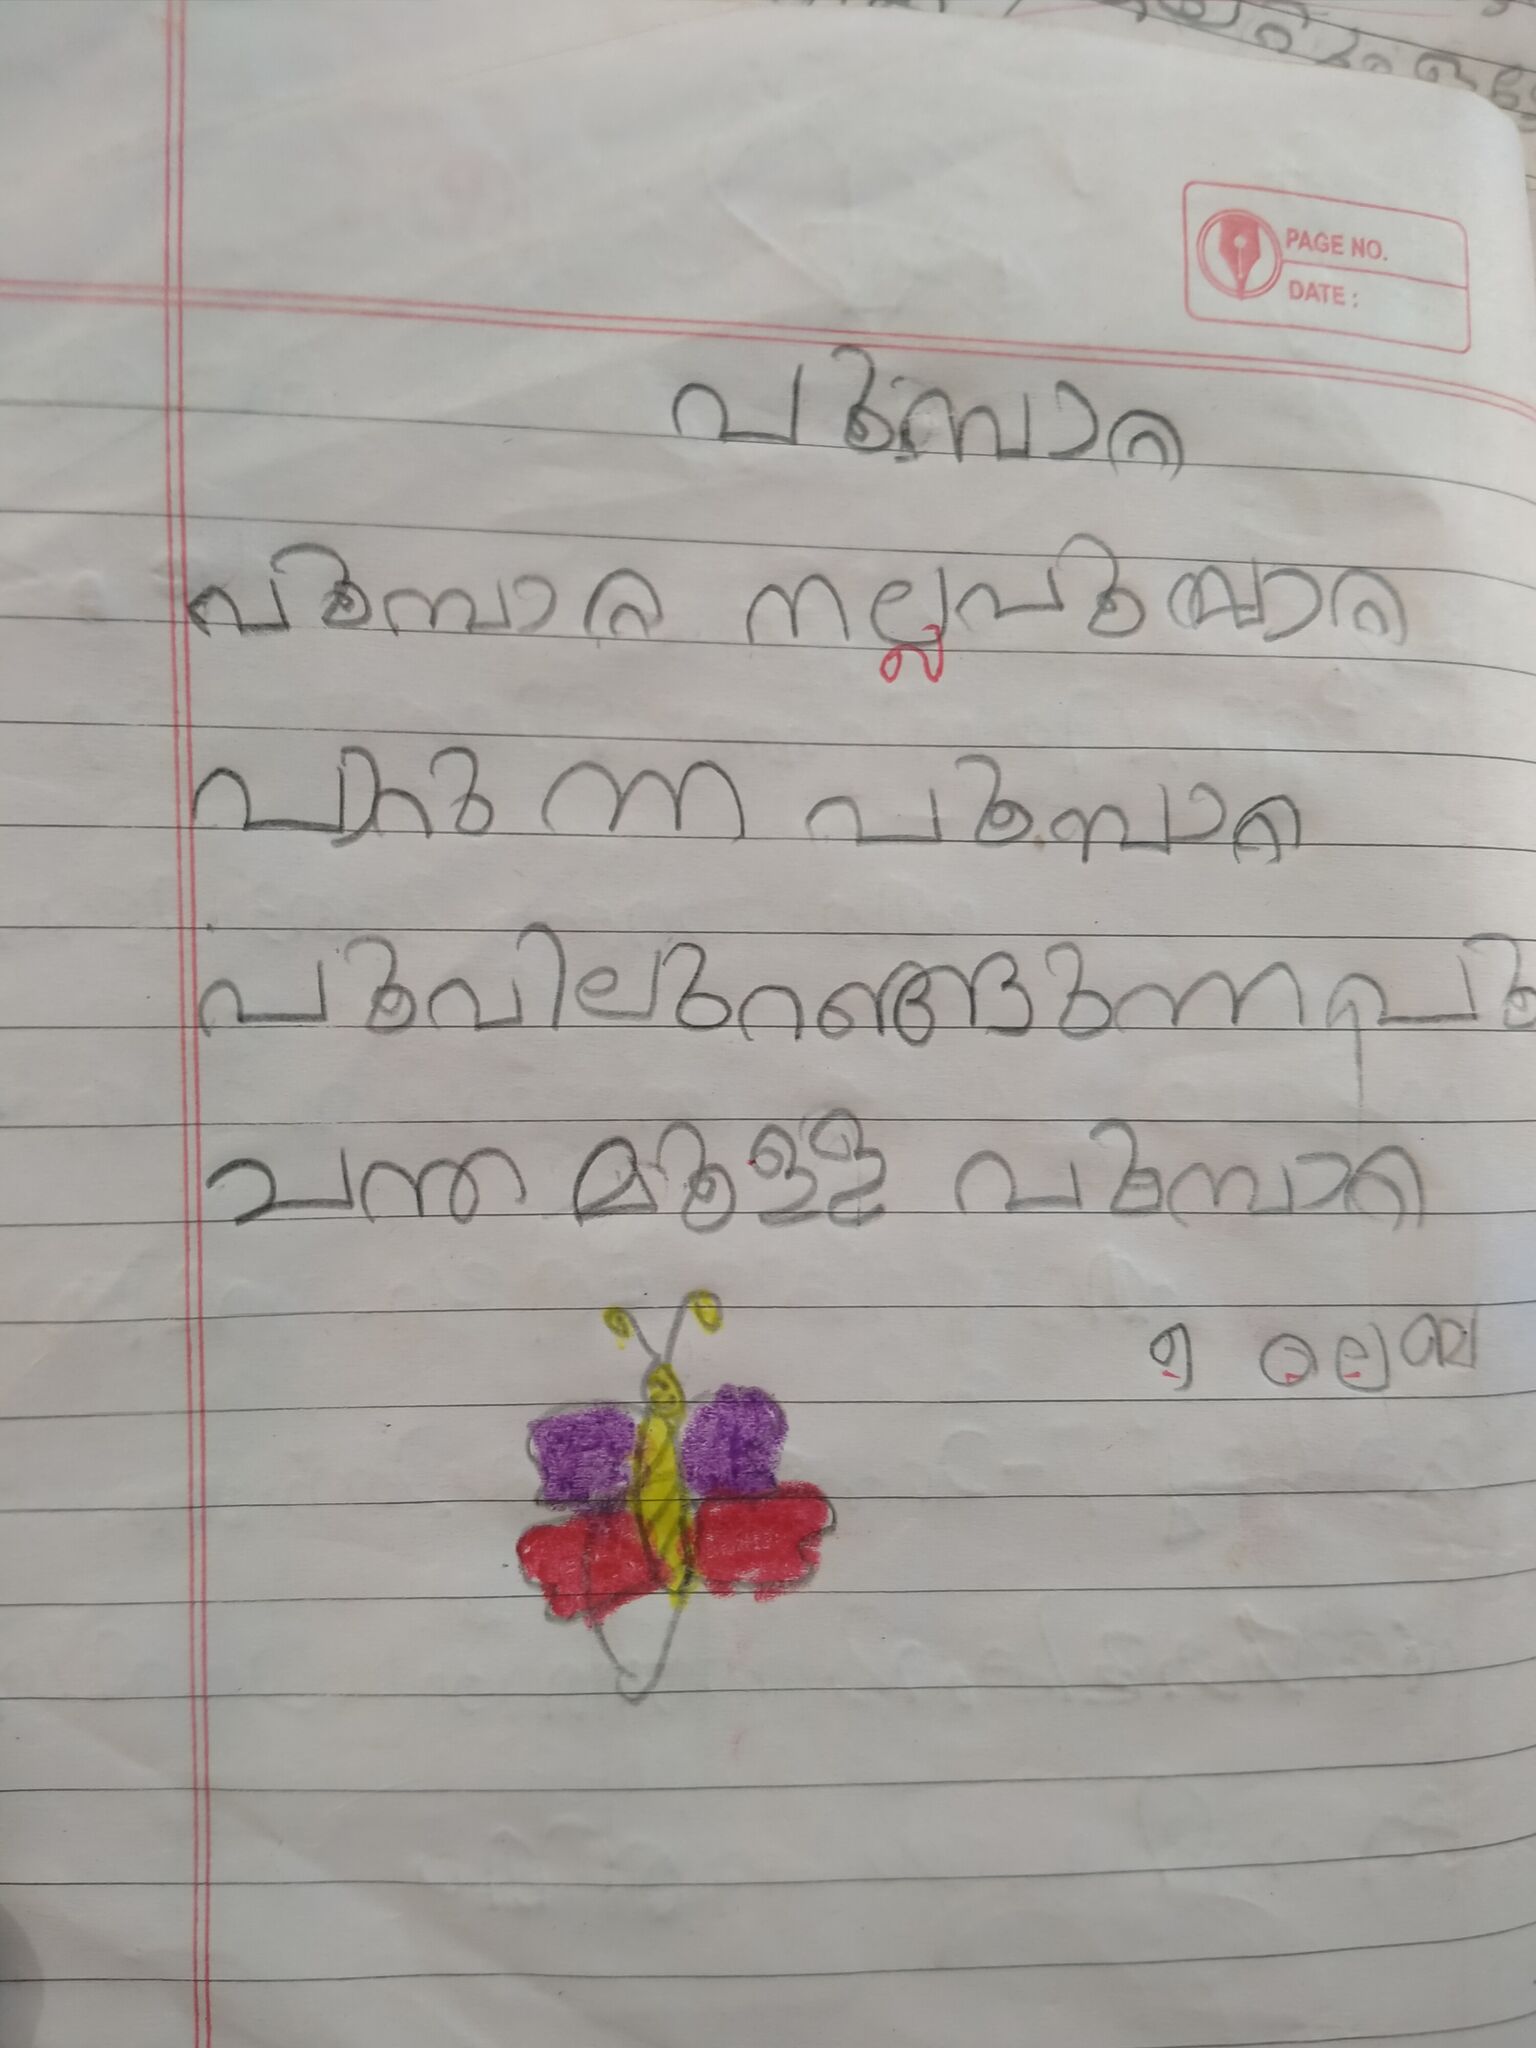 PAGE NO.
DATE :
പൂമ്പാറ്റ
പൂമ്പാറ്റ നല്ലപൂമ്പാറ്റ
പാറുന്ന പൂമ്പാറ്റ
പൂവിലുറങ്ങുന്ന
ചന്തമുള്ള പൂമ്പാറ്റ